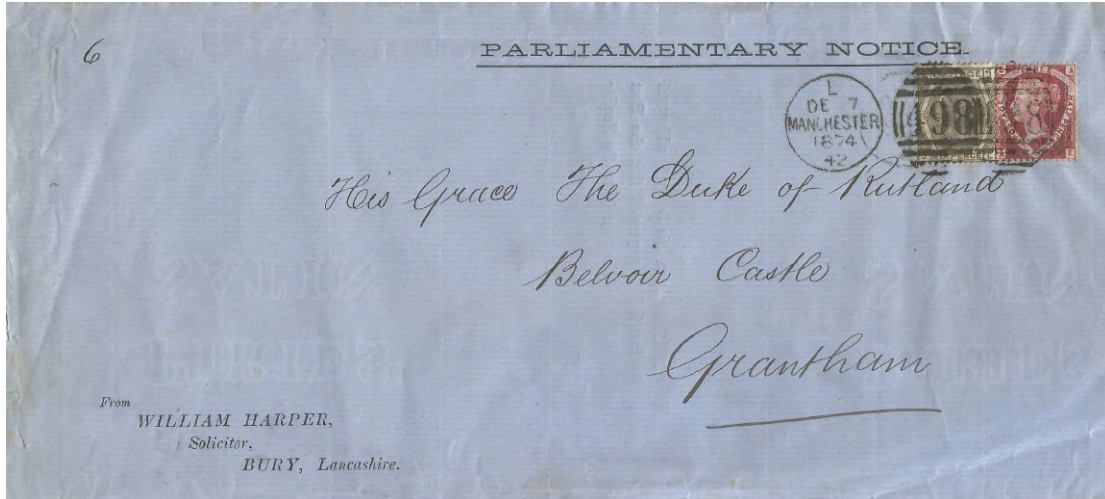 6
PARLIAMENTARY NOTICE.
L
DE 7
MANCHESTER
1874
42
498
His Grace The Duke of Rutland
Belvoir Castle
Grantham
From
WILLIAM HARPER,
Solicitor,
BURY, Lancashire.